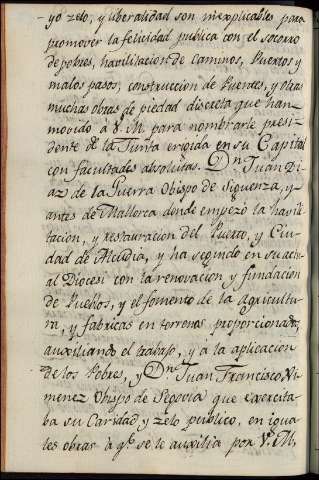 yo zelo, y liberalidad son inexplicables para
promover la felicidad publica con el socorro
de pobres, havilitacion de Caminos, Puertos y
malos pasos, construccion de Puentes, y otras
muchas obras de piedad discreta que han
movido à V. M. para nombrarle presi-
dente de la Junta erigida en su Capital
con facultades absolutas. Dn. Juan Di-
az de la Guerra Obispo de Siguenza, y
antes de Mallorca donde empezó la havili-
tacion, y restauracion del Puerto, y Ciu-
dad de Alcudia, y ha seguido en su actu-
al Diocesi con la renovacion y fundacion
de Pueblos, y el fomento de la Agricultu-
ra, y fabricas en terrenos proporcionados,
auxiliando el trabajo, y á la aplicacion
de los Pobres, y Dn. Juan Francisco Xi-
menez Obispo de Segovia que exercita-
ba su Caridad y zelo publico, en igua-
les obras à qe. se le auxilia por V. M.